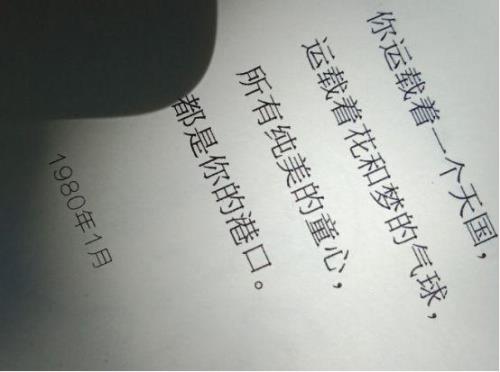 你运载着一个天国，
运载着花和梦的气球，
所有纯美的童心，
都是你的港口。
1980年1月